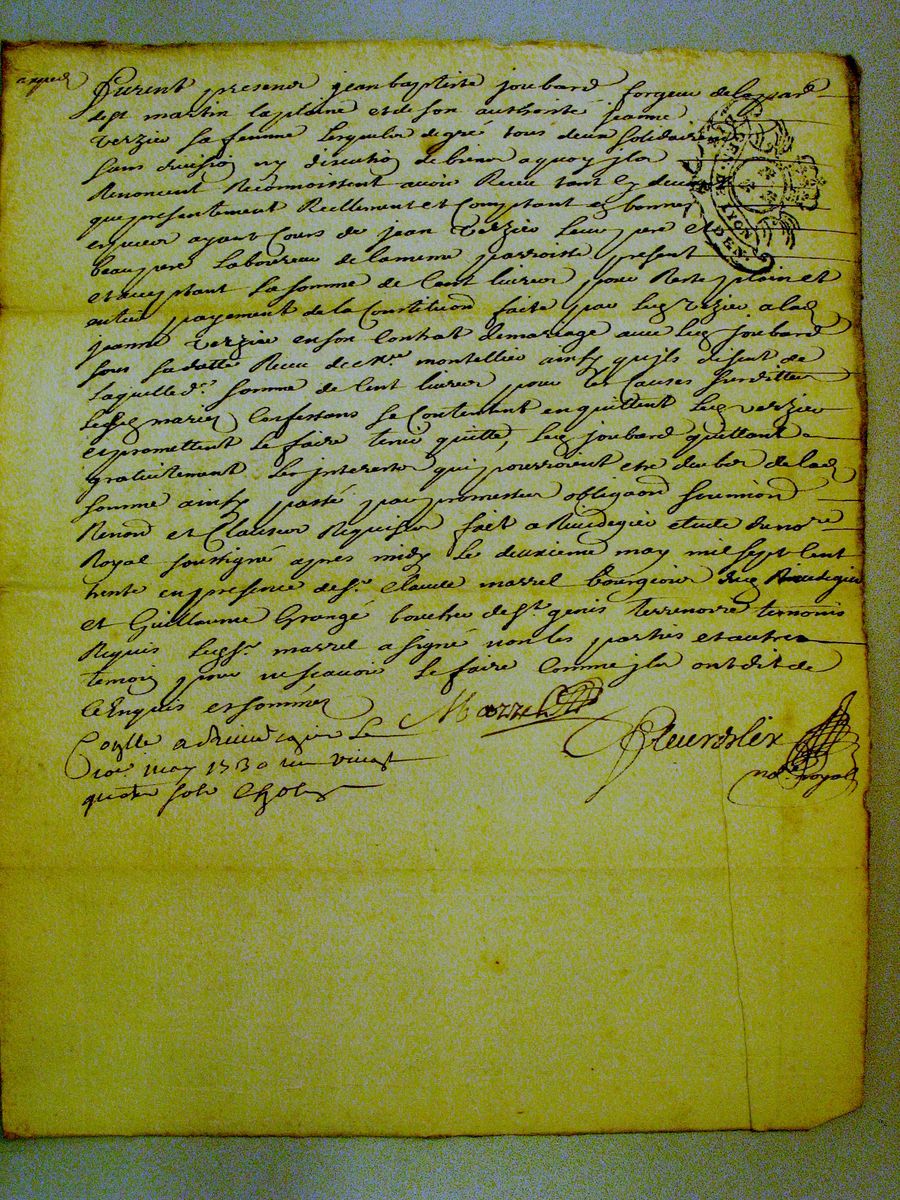 expedié
furent presens jean baptiste joubard forgeur de la par.
de st martin la plaine et de son authorité jeanne
verzieu sa femme lesquels de gré tous deux solidaires
sans division ny discution de biens a quoy jls
Renoncent Reconnoissent avoir Receu tant cy devant
que presentement Reellement et Comptant en bonnes
especes ayant Cours de jean verzieu leur pere et
beau pere laboureur de la meme parroisse present
et acceptant la somme de Cent livres pour Reste plain et
entier payement de la Constitution faite par led verzieu a lad
jeanne verzieu en son Contrat de mariage avec led joubard
sous sa datte Receu de Me montellier ainsy qu'ils disent de
laquelle de somme de Cent livres pour les Causes susdittes
lesd mariés Confessans se Contentent en quittent led verzieu
et promettent le faire tenir quitte, led joubard quittant
gratuitement les jnterests qui pourroient etre deubs de lad
somme ainsy passé par promesses obligaons soumions
Renons et Clauses Requises fait a Rivedegier etude du nore
Royal soussigné apres midy le deuxieme may mil sept Cent
trente en presence de sr Claude marrel bourgeois dud Rivedegier
et Guillaume Grangé boucher de st genis terrenoire temoins
Requis led sr marrel a signé non les parties et autre
temoin pour ne scavoir le faire Comme jls ont dit de
Ce Enquis et sommés
Marrel
fleurdelix
nore royal
Conlle a Rivedegier le
may 1730 vingt
quatre sols
LYON
DEN.